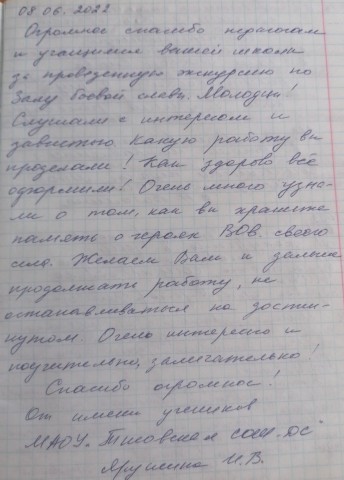 08.06.2022
Огромное спасибо педагогам
и учащимся вашей школы
за проведенную экскурсию по
Залу боевой славы. Молодцы!
Слушали с интересом и
завистью. Какую работу вы
проделали! Как здорово всё
оформили! Очень много узна-
ли о том, как вы храните
память о героях ВОВ. своего
села. Желаем Вам и дальше
продолжать работу, не
останавливаться на достиг-
нутом. Очень интересно и
поучительно, замечательно!
Спасибо огромное!
От имени учеников
МАОУ "
И.В.